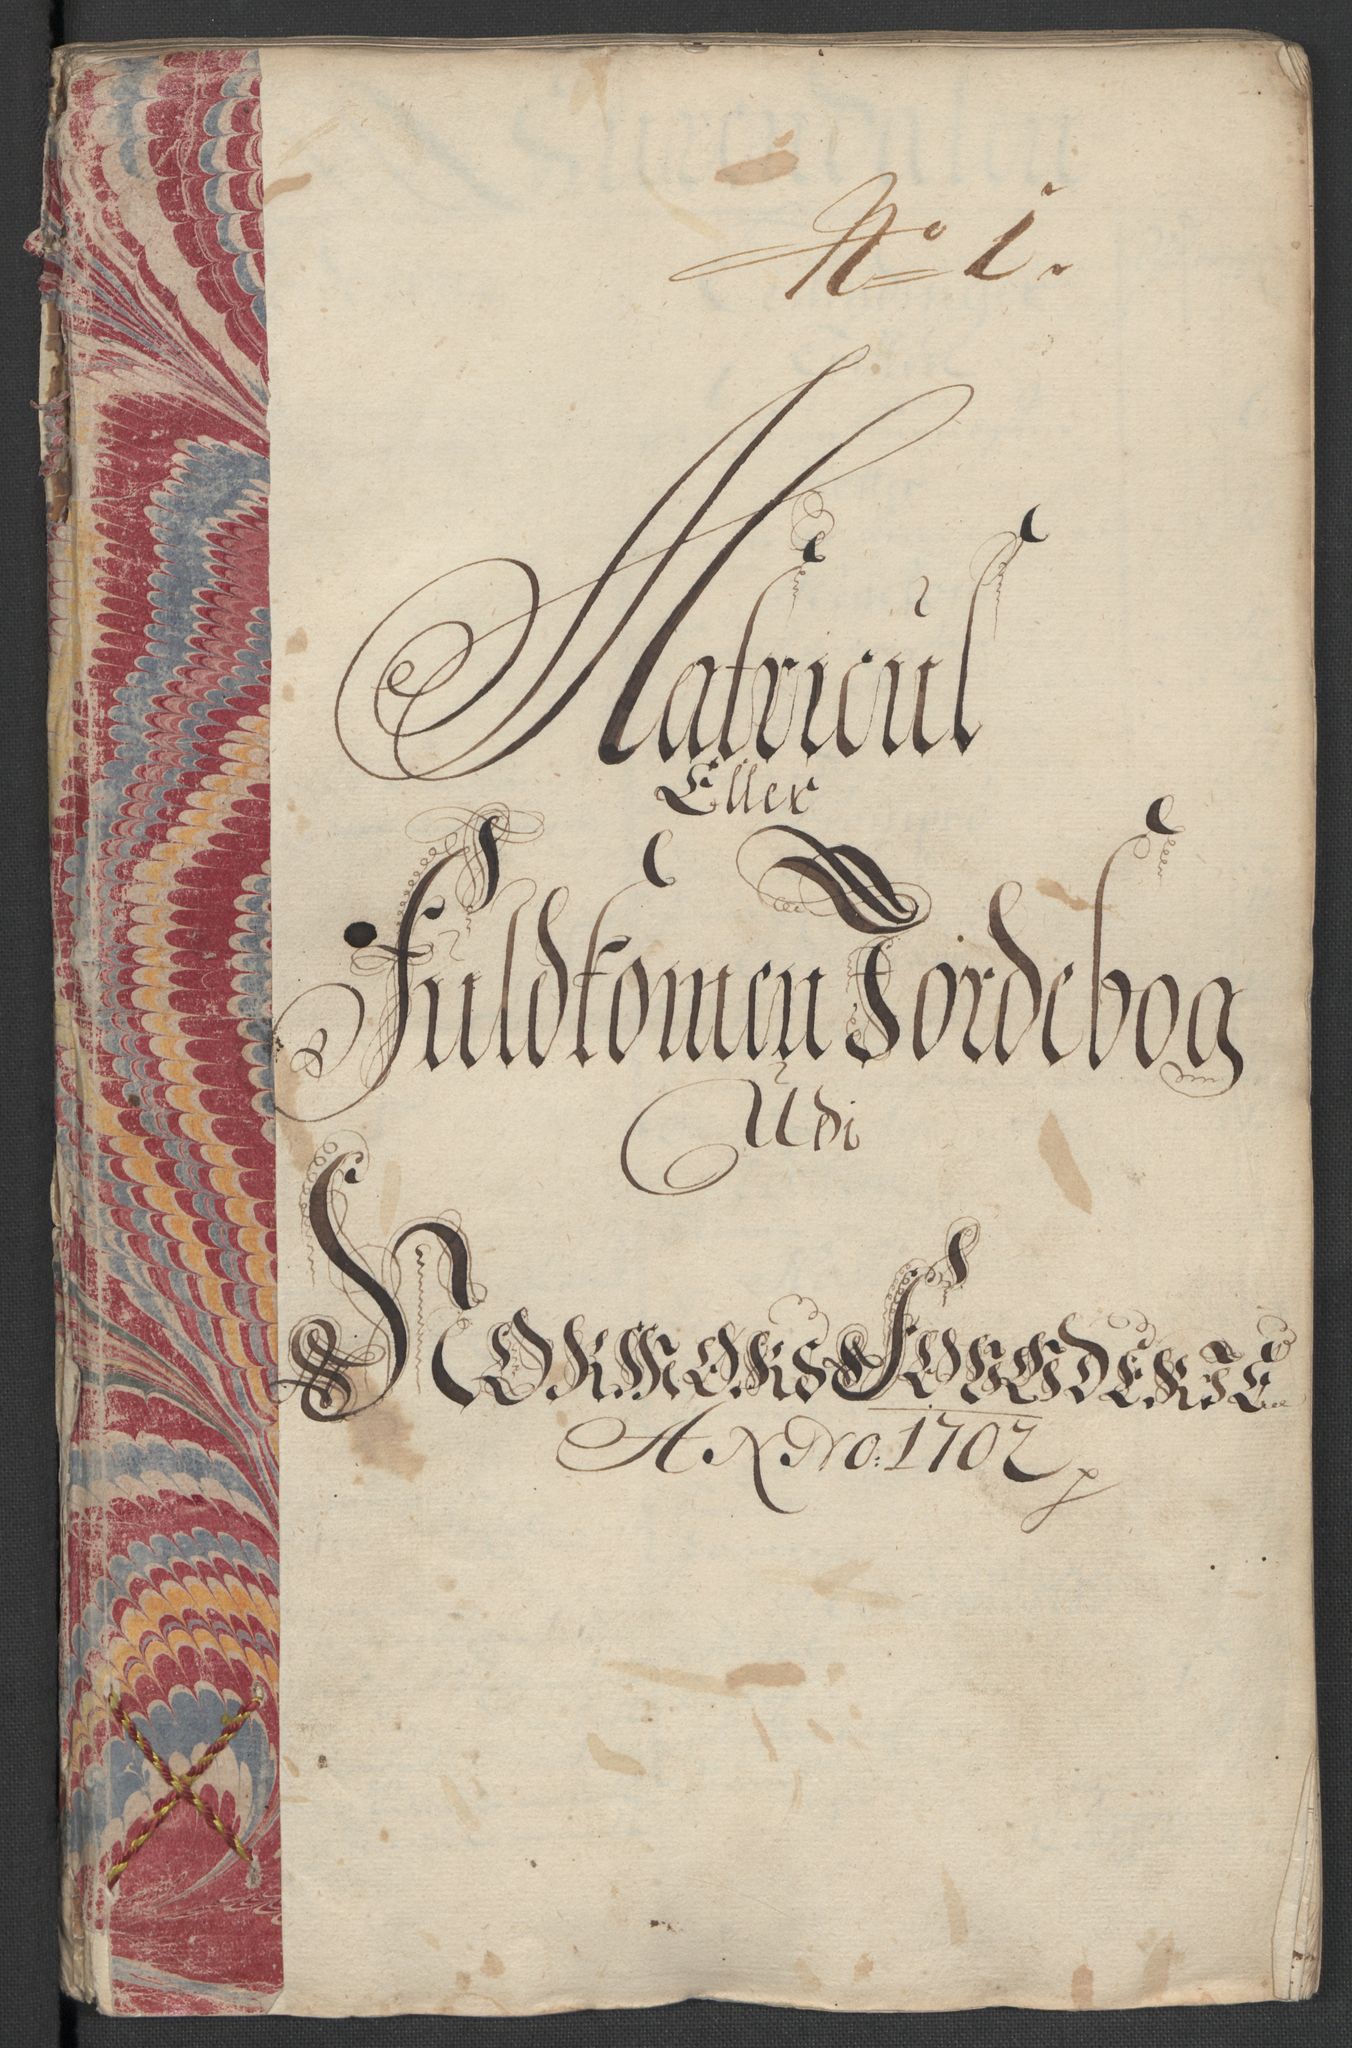 No 1.
Matricul
Eller
Fuldkomen Jordebog
Udi
NORMØRS FOUGDERIE
ANNO: 1702